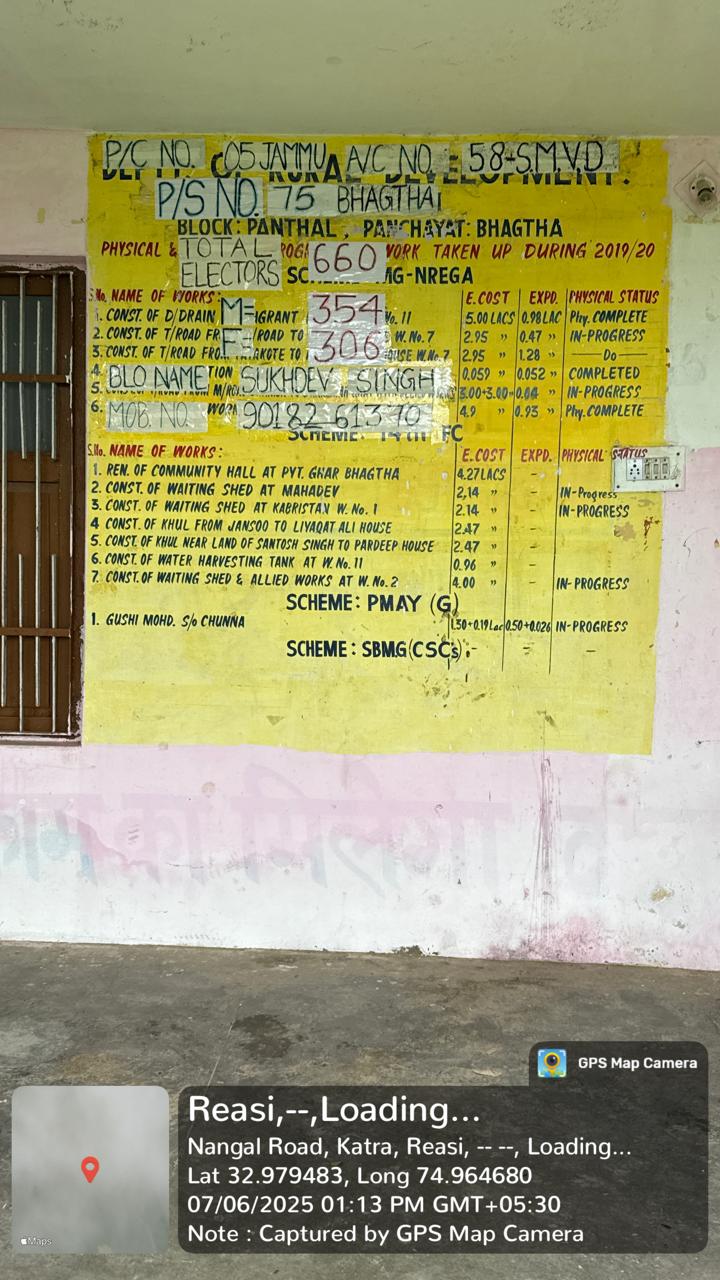 P/C NO. 05 JAMMU A/C NO. 58-S.M.V.D
DEPTT. OF RURAL DEVELOPMENT.
P/S NO. 75 BHAGTHA
BLOCK: PANTHAL, PANCHAYAT: BHAGTHA
PHYSICAL & WORK TAKEN UP DURING 2019/20
TOTAL ELECTORS 660
MG-NREGA
S.No. NAME OF WORKS: E.COST EXPD. PHYSICAL STATUS
1. CONST. OF D/DRAIN M= IGRANT 354 No. 11 5.00 LACS 0.98 LAC Phy. COMPLETE
2. CONST. OF T/ROAD F= /ROAD TO 306 W.No.7 2.95 " 0.47 " IN-PROGRESS
3. CONST. OF T/ROAD W.No.7 2.95 " 1.28 " —Do—
4. BLO NAME SUKHDEV SINGH 0.059 " 0.052 " COMPLETED
5. 3.00+3.00= 0.04 " IN-PROGRESS
6. MOB. NO. 90182 61370 4.9 " 0.93 " Phy. COMPLETE
SCHEME: 14TH FC
S.No. NAME OF WORKS: E.COST EXPD. PHYSICAL STATUS
1. REN. OF COMMUNITY HALL AT PYT. GHAR BHAGTHA 4.27 LACS -
2. CONST. OF WAITING SHED AT MAHADEV 2,14 " - IN-Progress
3. CONST. OF WAITING SHED AT KABRISTAN W.No. 1 2.14 " - IN-PROGRESS
4 CONST. OF KHUL FROM JANSOO TO LIYAQAT ALI HOUSE 2.47 " -
5. CONST. OF KHUL NEAR LAND OF SANTOSH SINGH TO PARDEEP HOUSE 2.47 " -
6. CONST. OF WATER HARVESTING TANK AT W.No.11 0.96 " -
7. CONST. OF WAITING SHED & ALLIED WORKS AT W.No.2 4.00 " IN-PROGRESS
SCHEME: PMAY (G)
1. GUSHI MOHD. S/o CHUNNA 1.50+0.19 Lac 0.50+0.026 IN-PROGRESS
SCHEME: SBMG(CSCs) :- - -
GPS Map Camera
Reasi,--,Loading...
Nangal Road, Katra, Reasi, -- --, Loading...
Lat 32.979483, Long 74.964680
07/06/2025 01:13 PM GMT+05:30
Note : Captured by GPS Map Camera
Maps